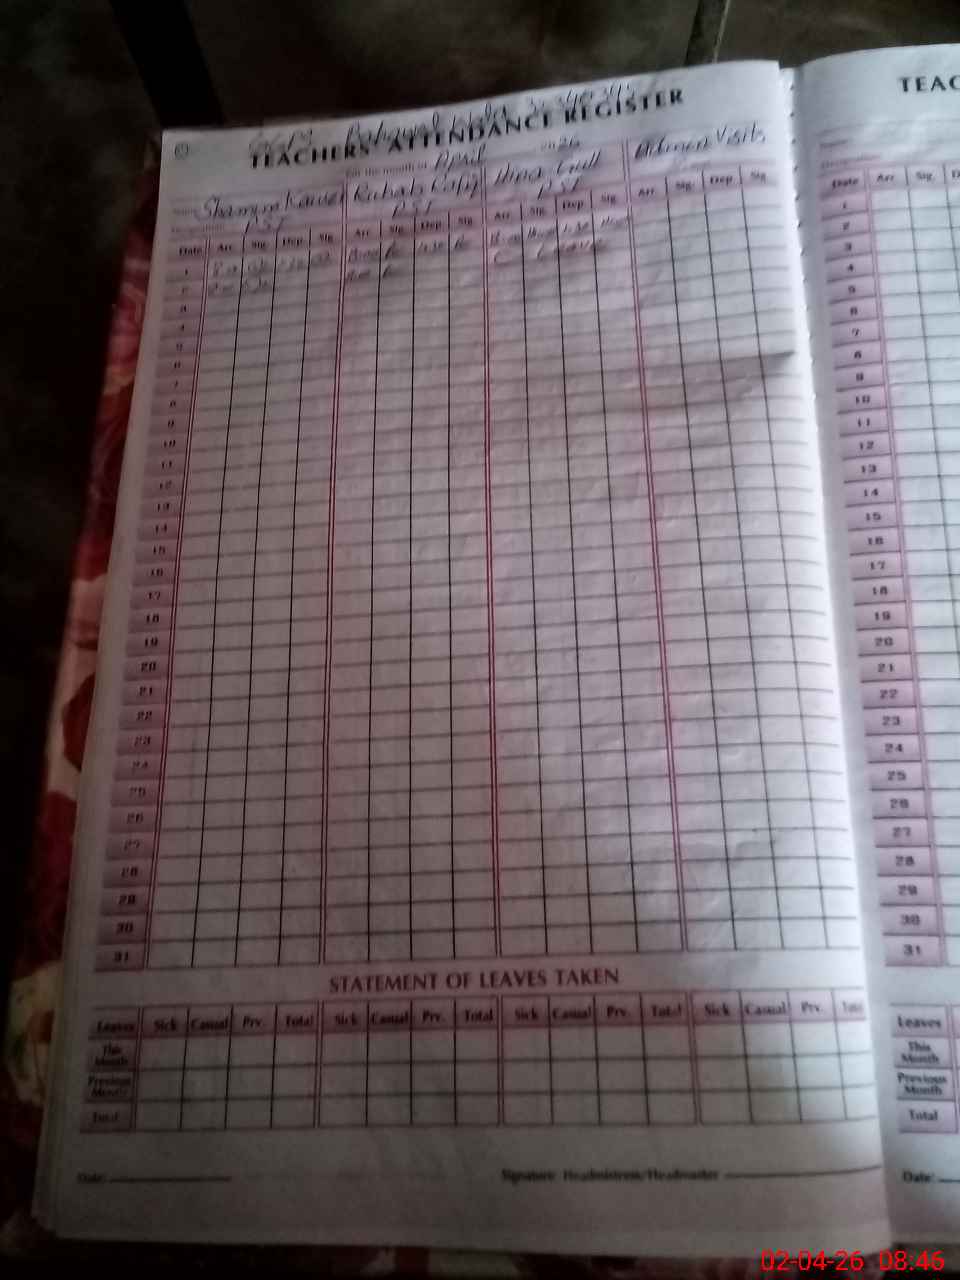 TEACHERS' ATTENDANCE REGISTER
For the month of April 2026
Name Shamim Kausar Rubab Rafiq Hina Gull Admin Visits
Designation PST PST PST
Date Arr. Sig. Dep. Sig. Arr. Sig. Dep. Sig. Arr. Sig. Dep. Sig. Arr. Sig. Dep. Sig.
1 8:00
2 8:00 Leave
3
4
5
6
7
8
9
10
11
12
13
14
15
16
17
18
19
20
21
22
23
24
25
26
27
28
29
30
31
STATEMENT OF LEAVES TAKEN
Leaves Sick Casual Prv. Total Sick Casual Prv. Total Sick Casual Prv. Total Sick Casual Prv. Total
This Month
Previous Month
Total
Date: Signature Headmistress/Headmaster
TEAC
Date Arr. Sig. D
1
2
3
4
5
6
7
8
9
10
11
12
13
14
15
16
17
18
19
20
21
22
23
24
25
26
27
28
29
30
31
Leaves
This Month
Previous Month
Total
Date:
02-04-26 08:46